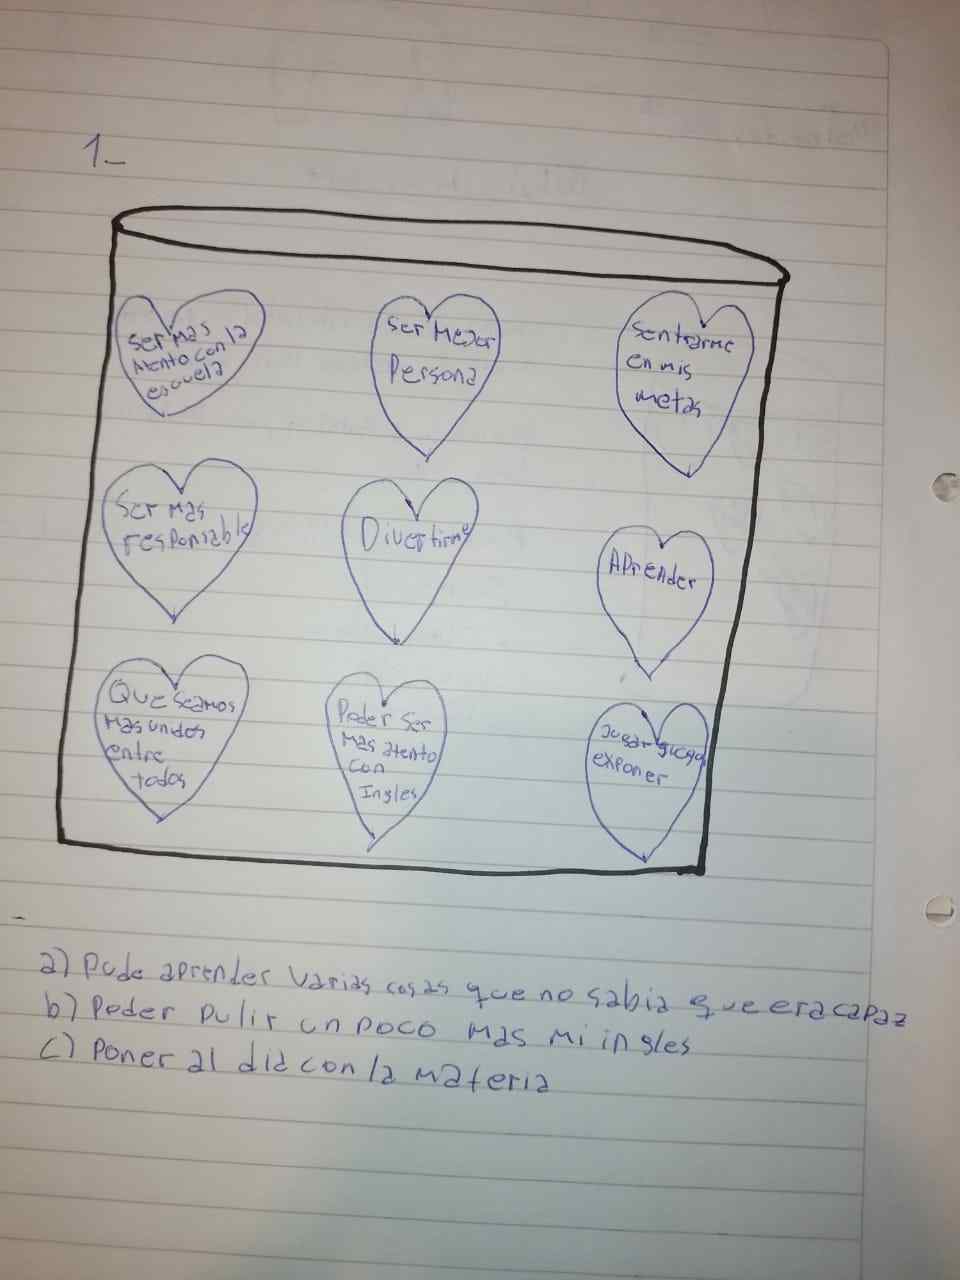 1-
Ser mas
atento con la
escuela
Ser Mejor
Persona
Sentrarme
en mis
metas
Ser mas
responsable
Divertirme
Aprender
Que seamos
mas unidos
entre
todos
Poder ser
mas atento
con
Ingles
Jugar
exponer
-
a) Pude aprender varias cosas que no sabia que era capaz
b) Poder pulir un poco mas mi ingles
c) Poner al dia con la materia